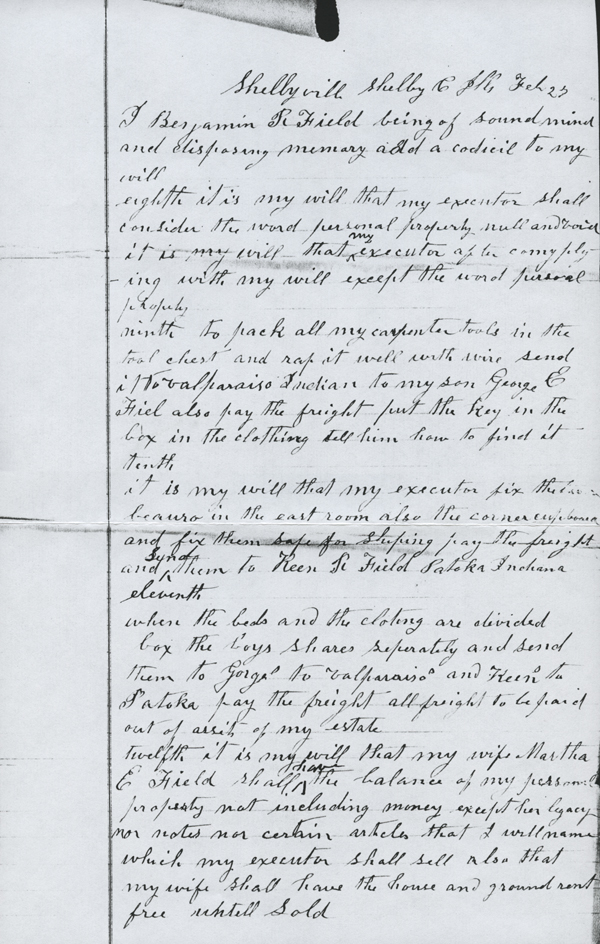 Shellyvill Shelby C Ills Feb 23
I Benjamin R Field being of sound mind
and disposing memory add a codicil to my
will
eighth it is my will that my executor shall
consider the word personal property null and void
it is my will that my executor after complply
-ing with my will except the word personal
propety
ninth to pack all my carpenter tools in the
tool chest and rap it well with wire send
it to valparaiso Indian to my son George E
Fiel also pay the freight put the key in the
box in the clothing tell him how to find it
tenth
it is my will that my executor fix the
beauro in the east room also the corner cupboard
and fix them safe for shiping pay the freight
and send them to Keen R Field Patoka Indiana
eleventh
when the beds and the cloting are divided
box the boys shares seperately and send
them to Gorges to valparaiso and Keens to
Patoka pay the freight all freight to be paid
out of assits of my estate
twelfth it is my will that my wife Martha
E Field shall have the balance of my personal
property not including money except her legacy
nor notes nor certain articles that I will name
which my executor shall sell also that
my wife shall have the house and ground rent
free untell Sold